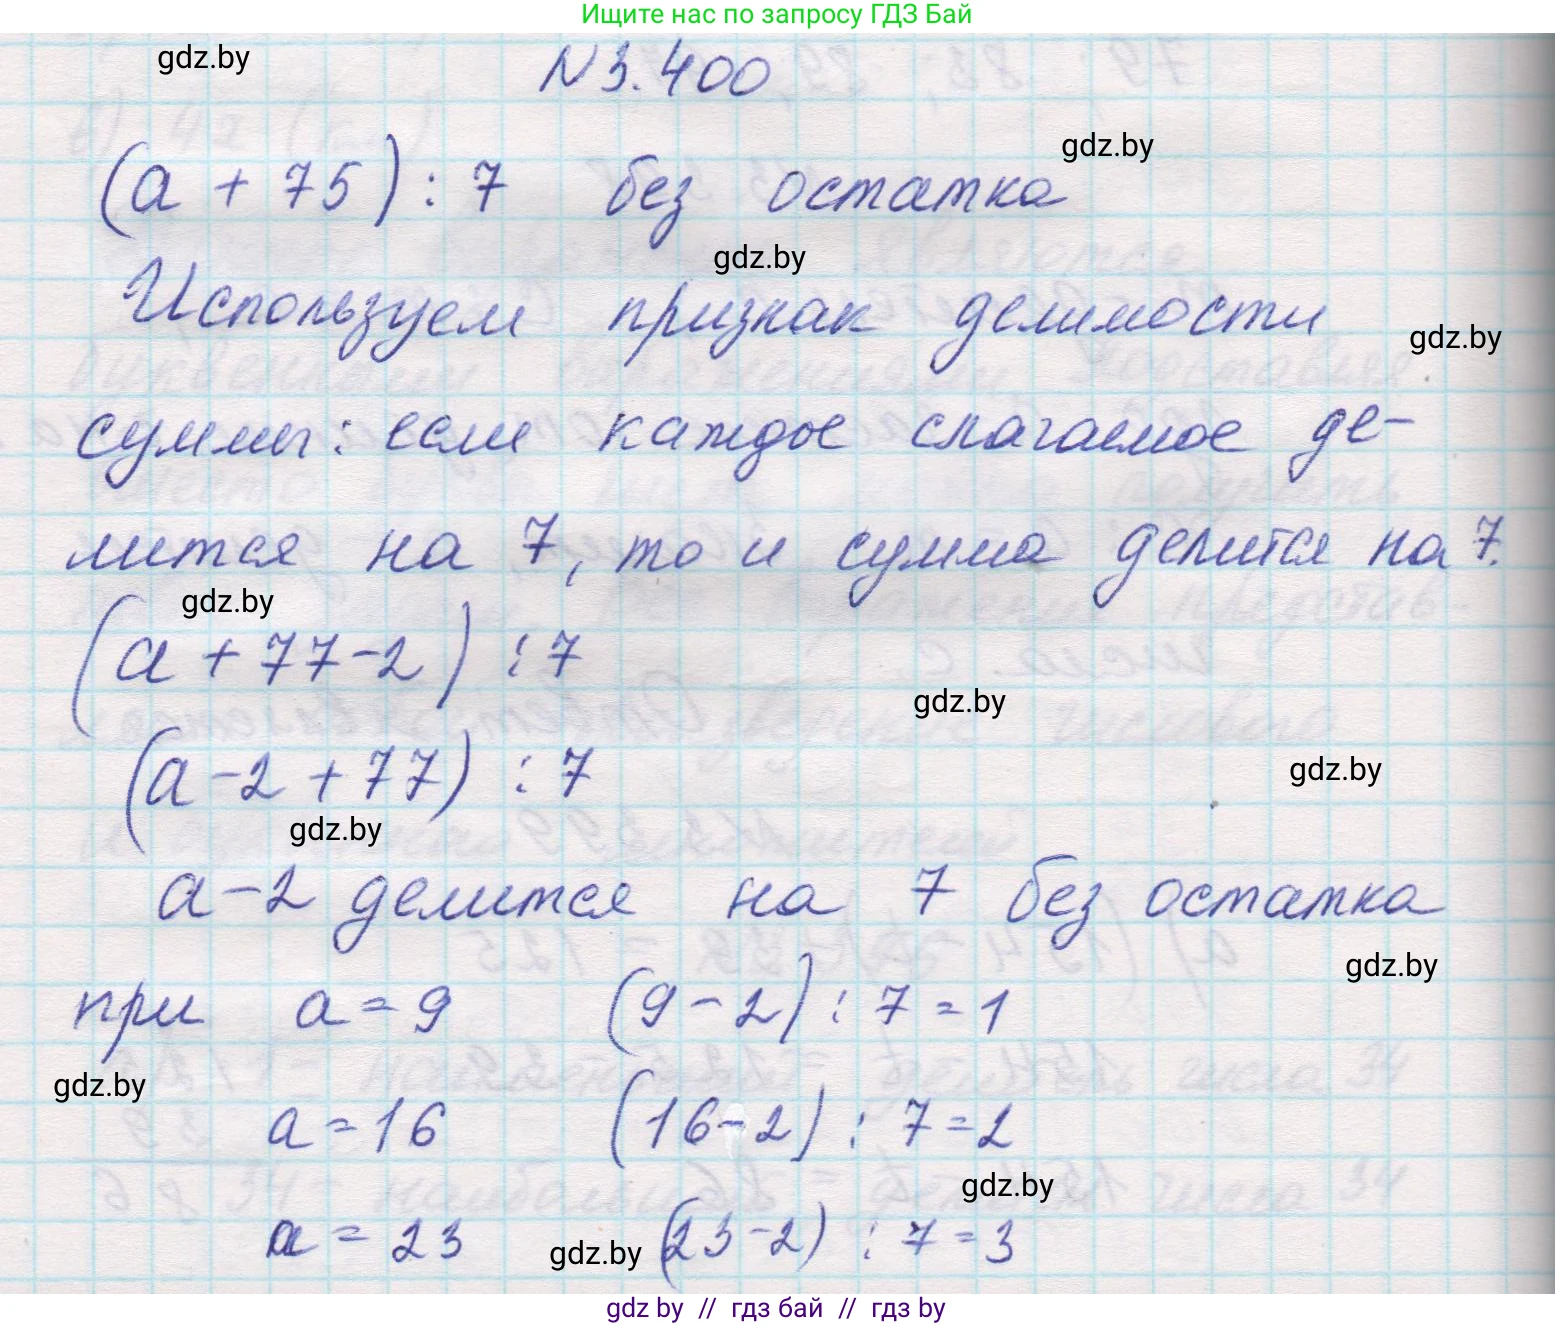 Ищите нас по запросу ГДЗ Бай
gdz.by
N 3.400
(a + 75) : 7 без остатка
gdz.by
gdz.by
Используем признак делимости
gdz.by
суммы: если каждое слагаемое де-
лится на 7, то и сумма делится на 7.
gdz.by
(a + 77-2) : 7
gdz.by
(a-2+77) : 7
gdz.by
gdz.by
a-2 делится на 7 без остатка
gdz.by
при a=9 (9-2) : 7=1
gdz.by
a=16 (16-2) : 7=2
gdz.by
a=23 (23-2) : 7=3
gdz.by
gdz by // гдз бай // гдз by